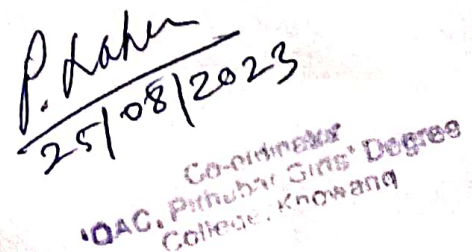 P.
25/08/2023
Co-ordinator
IQAC, Pithubar Girls' Degree
College, Khowang